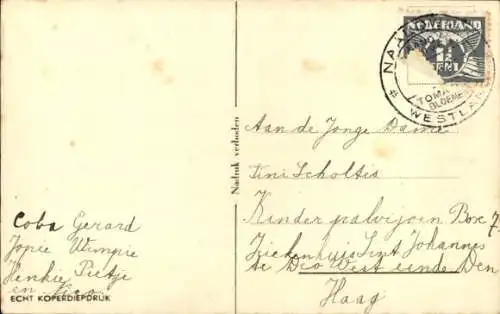 NEDERLAND
1½ CENT
NAALD
TOMA
BLOEME
WESTLAN
Nadruk verboden
Aan de Jonge Dame
Tini Scholtis
Kinder palvijoen Box 7
Ziekenhuis Sint Johannes
te Dio West einde Den
Haag
Coba Gerard
Jopie Wimpie
Henkie Pietje
en
ECHT KOPERDIEPDRUK